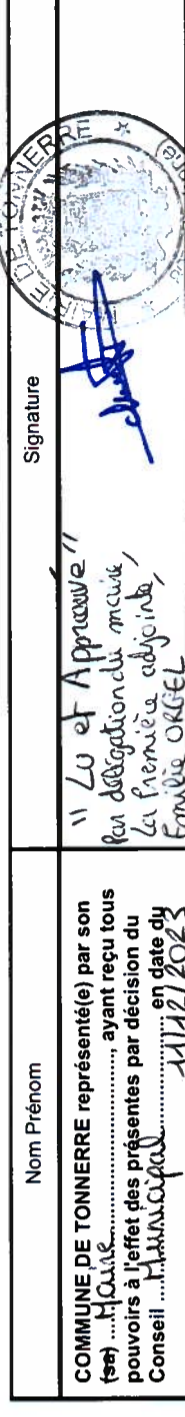 Nom Prénom
Signature
COMMUNE DE TONNERRE représenté(e) par son
(sa) ...Maire..................., ayant reçu tous
pouvoirs à l'effet des présentes par décision du
Conseil ...Municipal................ en date du
11/12/2023
" Lu et Approuvé "
Par délégation du maire,
La Première adjointe,
Emilie ORGEL
MAIRIE DE TONNERRE